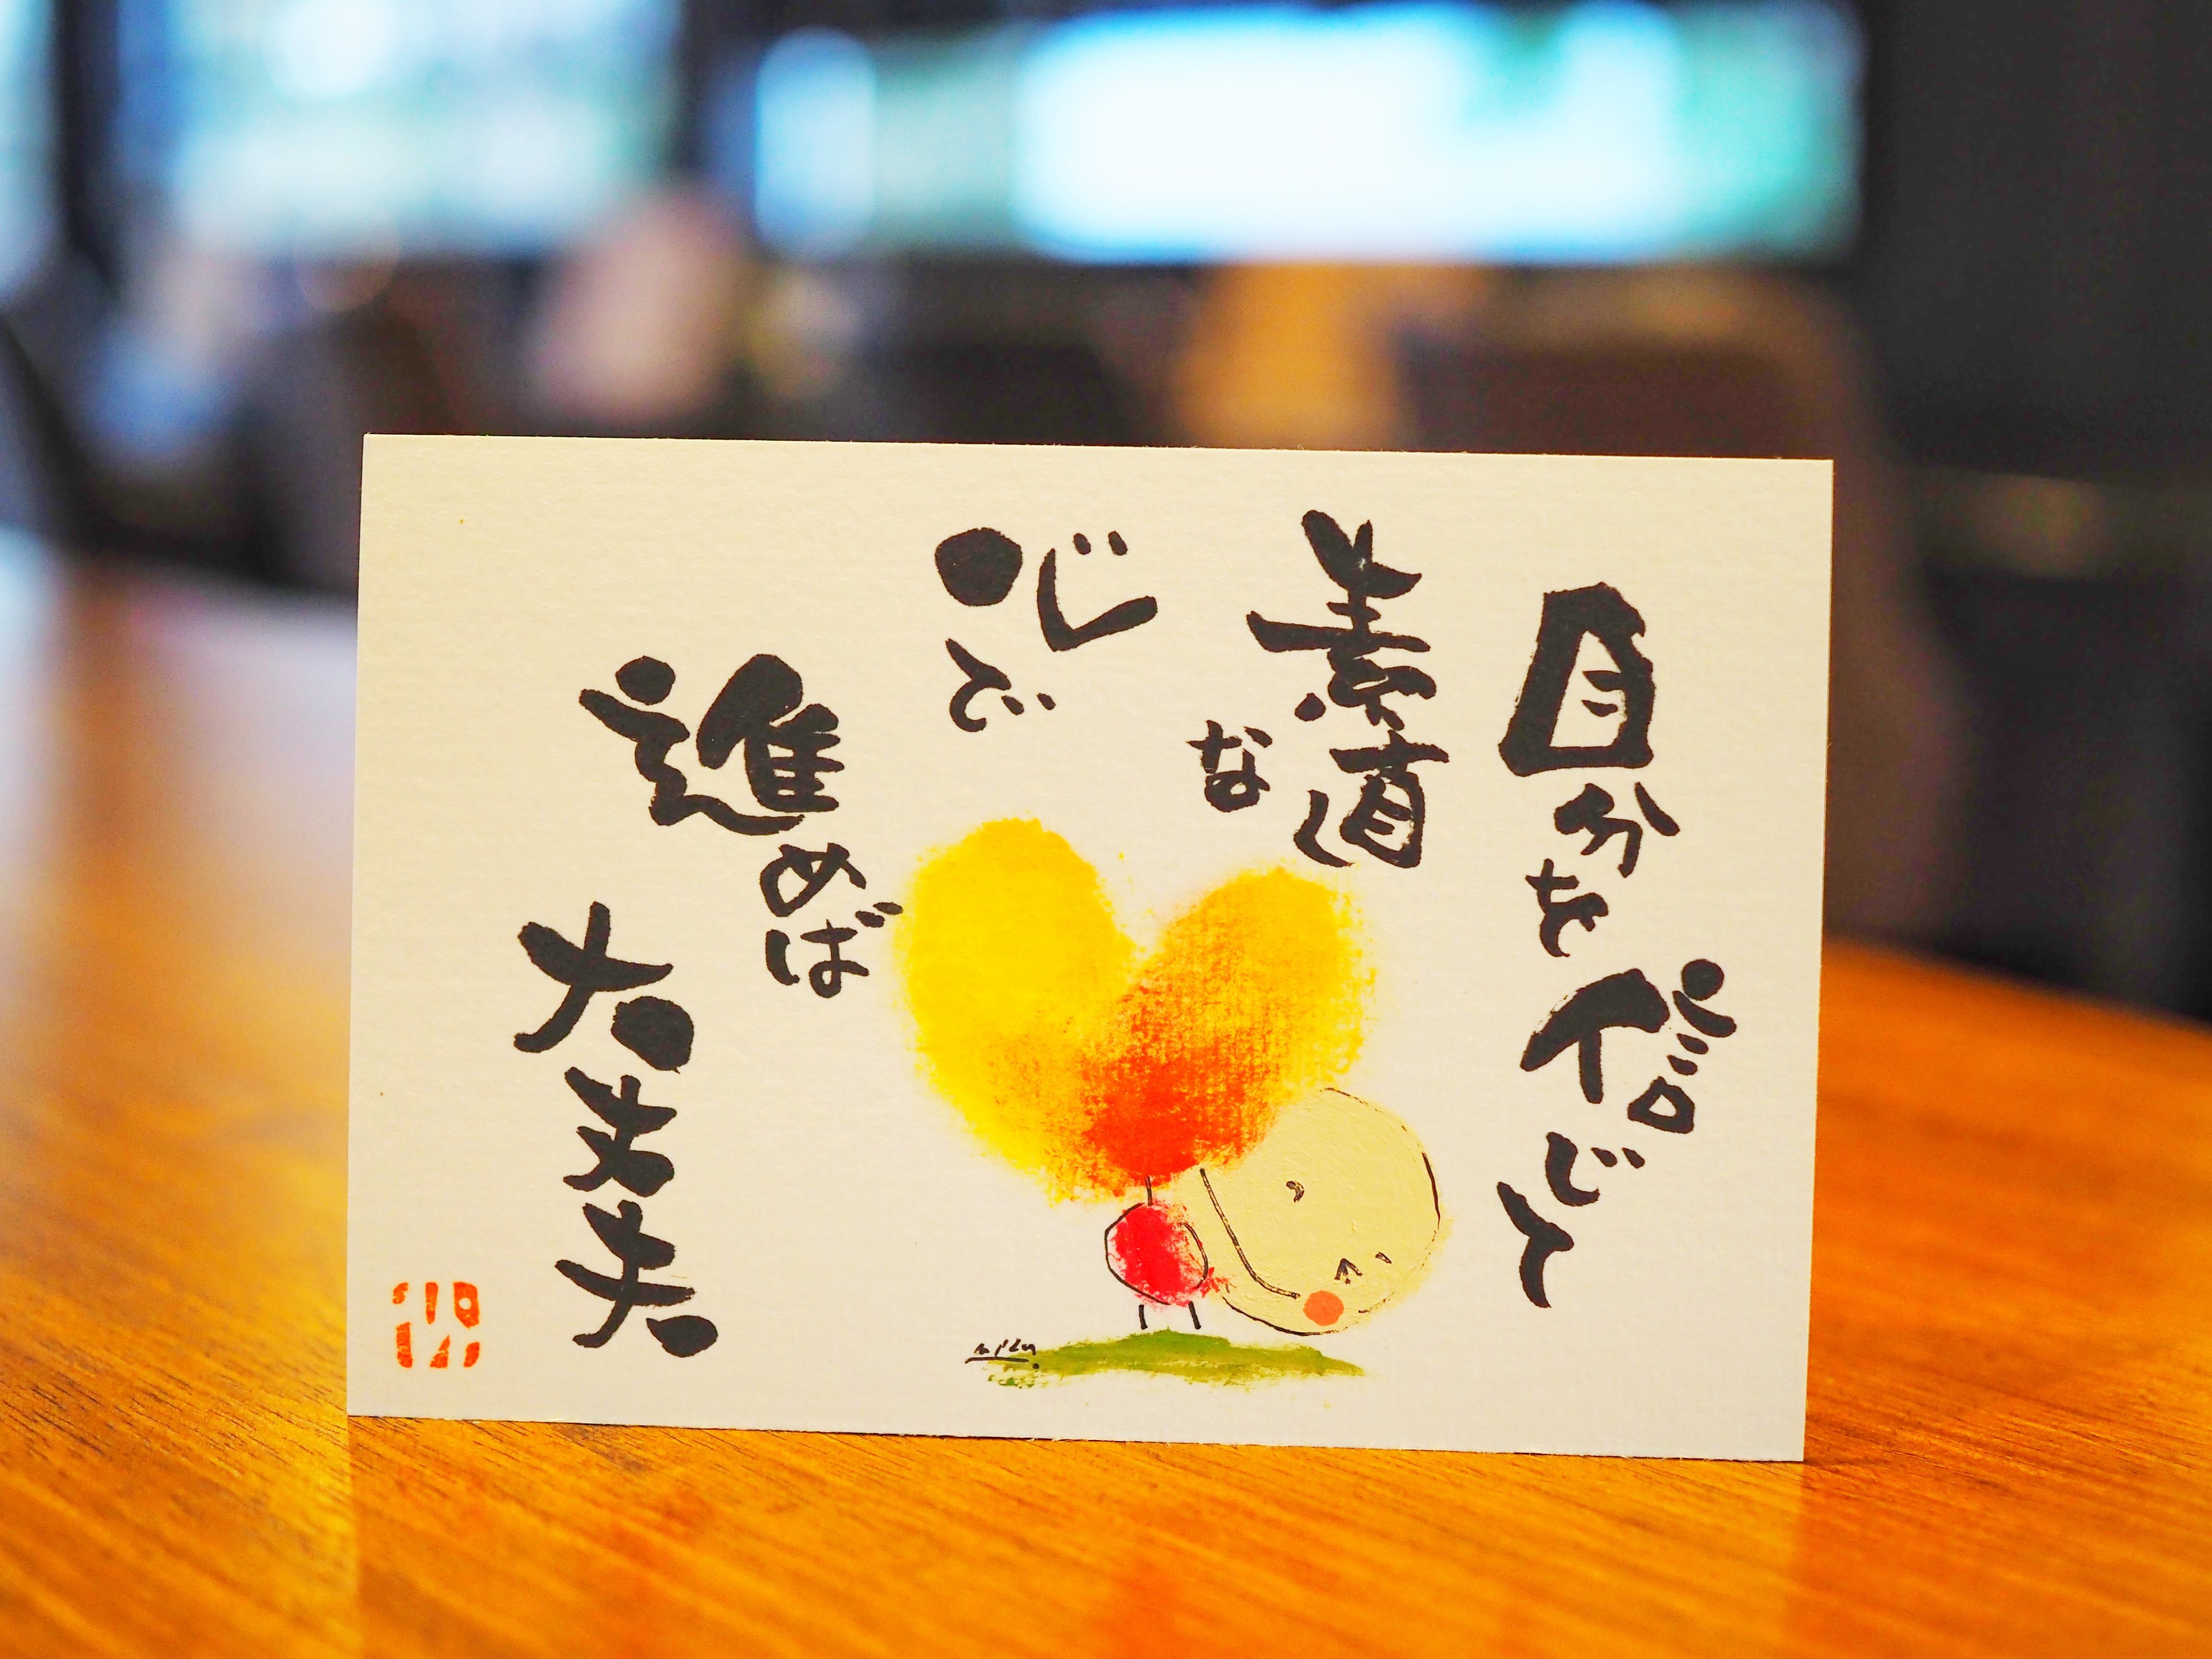 自分を信じて
素直な
心で
進めば
大丈夫